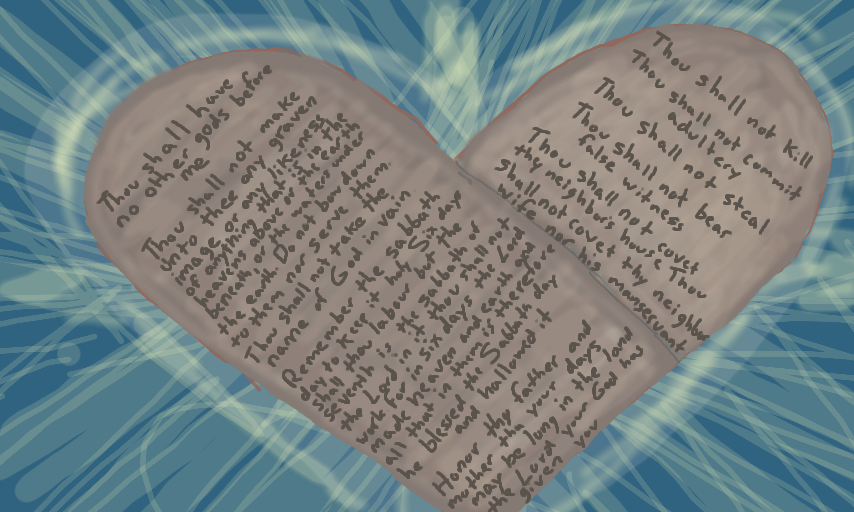 Thou shall have
no other gods before
me
Thou shall not make
unto thee any graven
image or any likeness
of anything that is in the
heavens above or the earth
beneath or the waters under
the earth. Do not bow down
to them nor serve them.
Thou shall not take the
name of God in vain
Remember the Sabbath
day to keep it holy. Six day
shall thou labour but the
seventh is the Sabbath of
the Lord in it thou shall not
work for in six days the Lord
made heaven and earth and
all that in there is therefore
he blessed the Sabbath day
and hallowed it
Honor thy father and
mother tha your days
may be long in the land
the Lord your God has
given you
Thou shall not kill
Thou shall not commit
adultery
Thou shall not steal
Thou shall not bear
false witness
Thou shall not covet
thy neighbor's house Thou
shall not covet thy neighbor
wife nor his manservant